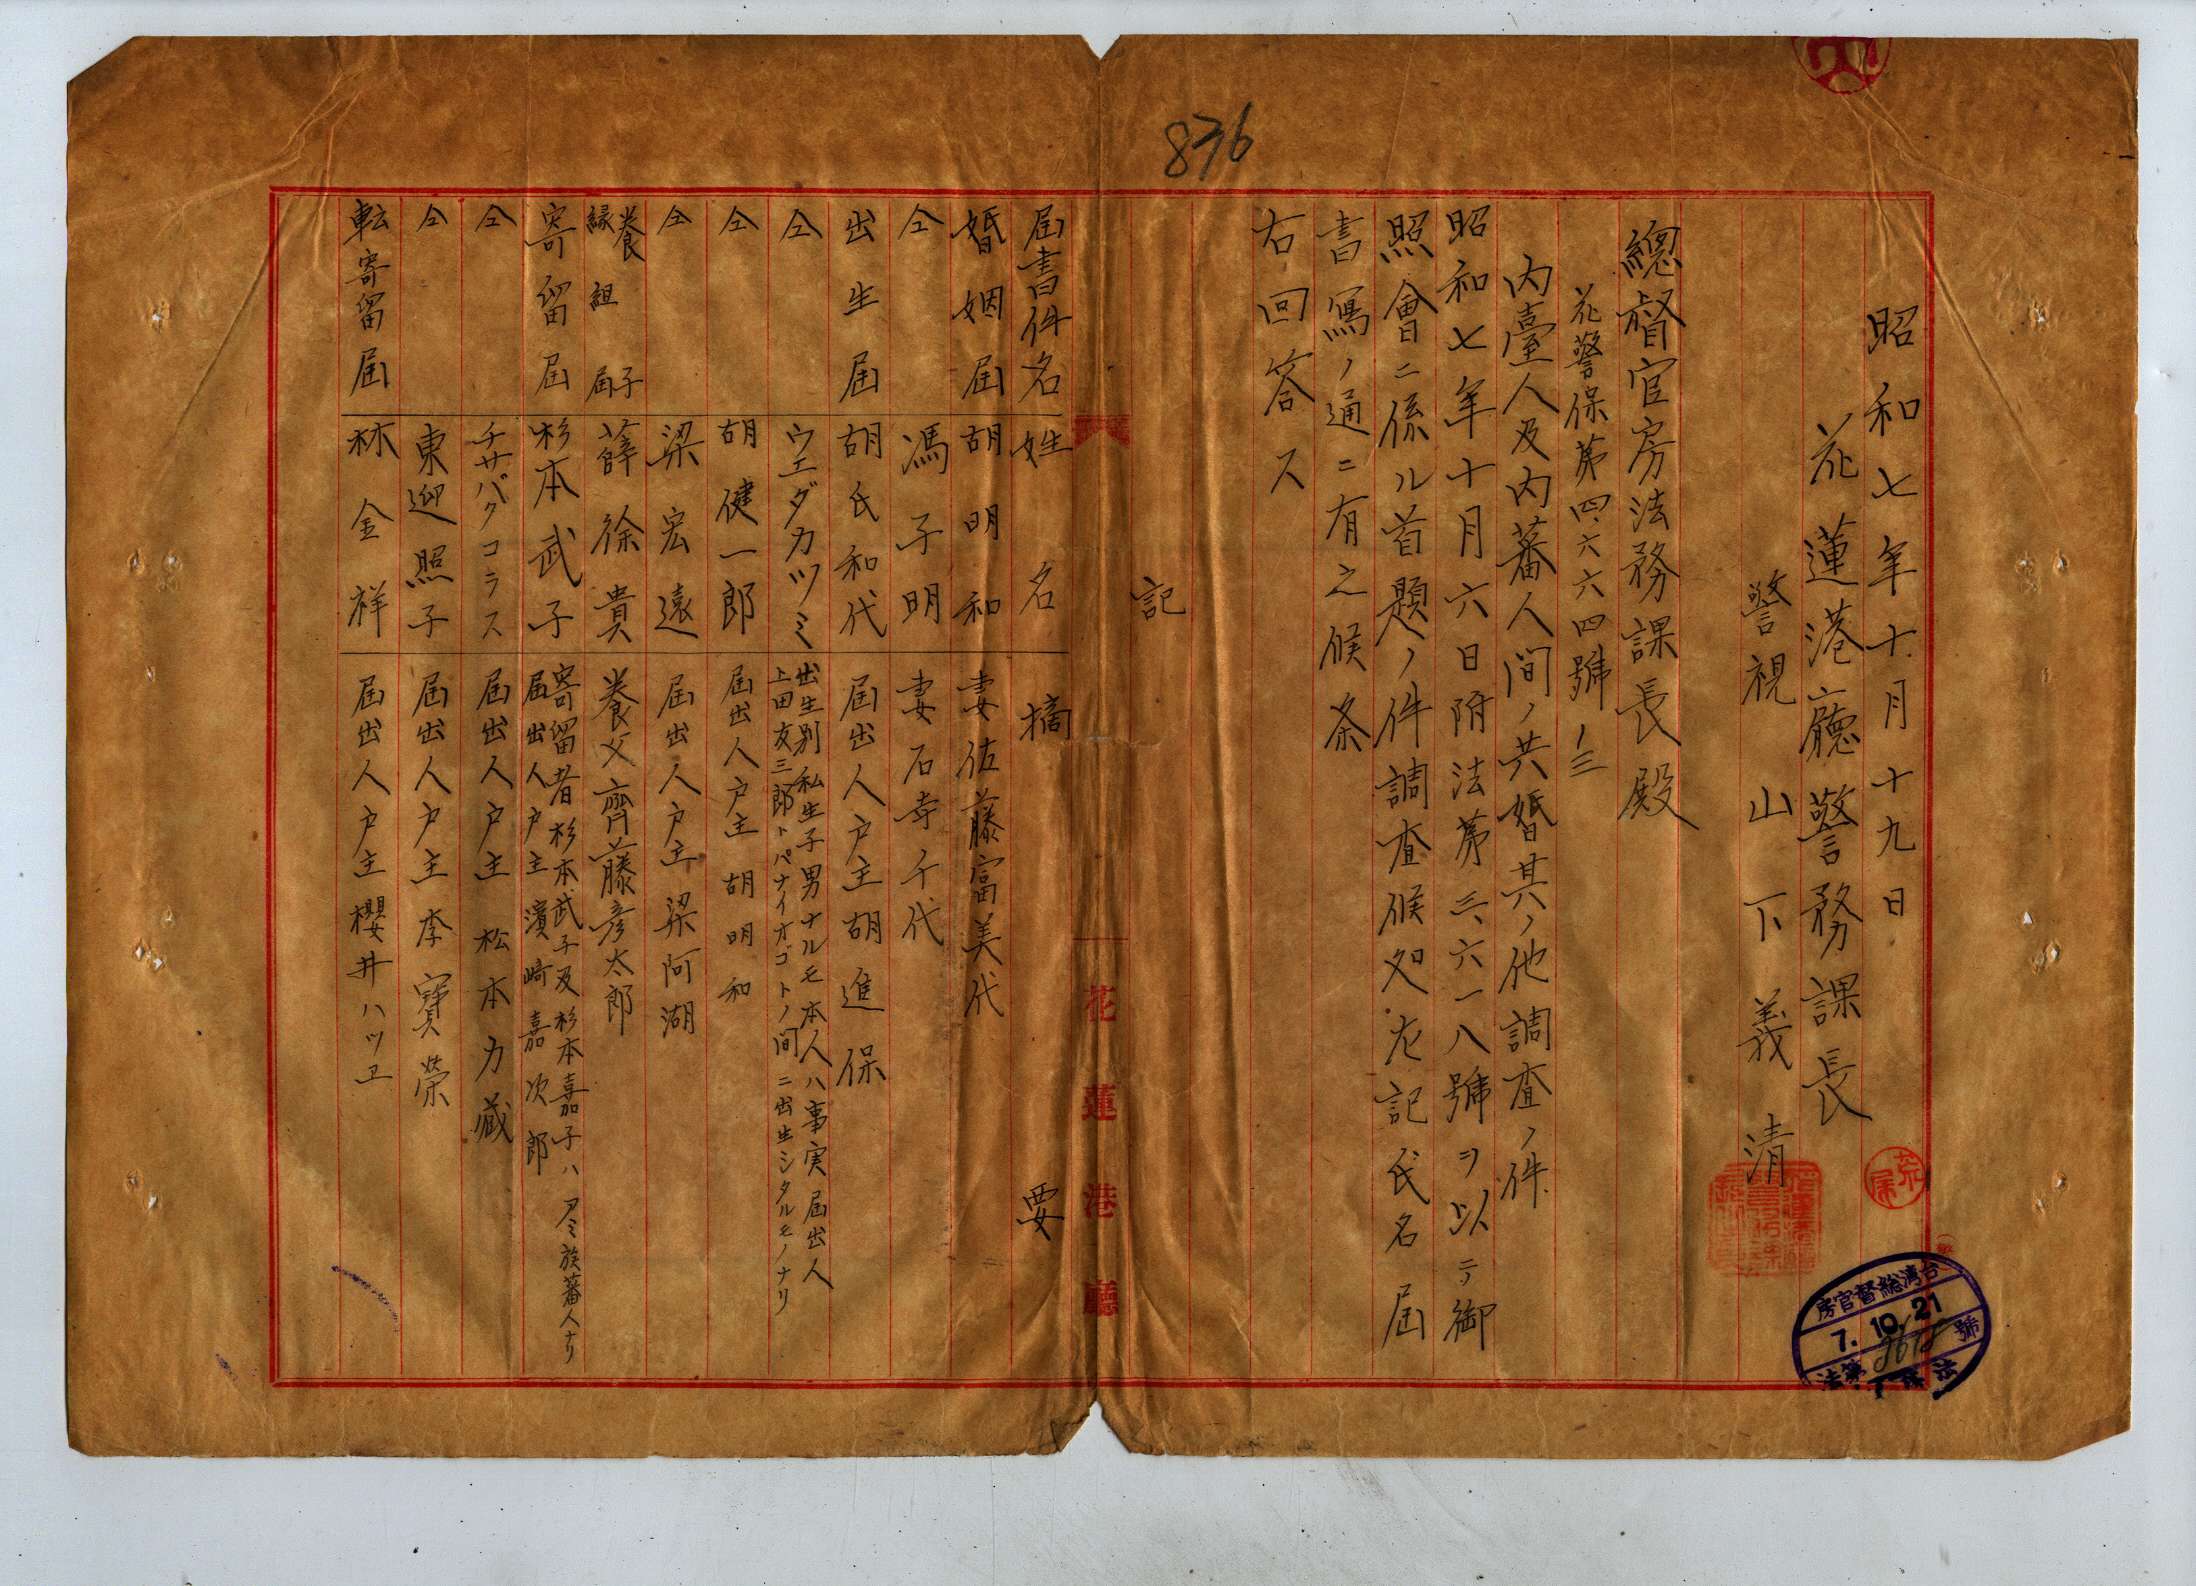 876
昭和七年十月十九日
花蓮港廳警務課長
警視 山下義清
總督官房法務課長殿
花警保第四、六六四號ノ三
内臺人及内蕃人間ノ共婚其ノ他調査ノ件
昭和七年十月六日附法第三、六一八號ヲ以テ御
照會ニ係ル首題ノ件調査候処左記氏名屆
書寫ノ通ニ有之候条
右回答ス
記
花蓮港廳
屆書件名 姓名 摘要
婚姻屆 胡明和 妻佐藤富美代
仝 馮子明 妻石寺千代
出生屆 胡氏和代 屆出人戸主胡進保
仝 ウエダカツミ 出生別私生子男ナルモ本人ハ事実屆出人
上田友三郎トパナイオゴトノ間ニ出生シタルモノナリ
仝 胡健一郎 屆出人戸主胡明和
仝 梁宏遠 屆出人戸主梁阿湖
養子縁組屆 薛徐貴 養父齊藤彦太郎
寄留屆 杉本武子 寄留者杉本武子及杉本嘉子ハアミ族蕃人ナリ
屆出人戸主濱崎嘉次郎
仝 チサパクコラス 屆出人戸主松本力藏
仝 東迎照子 屆出人戸主李寶榮
転寄留屆 林金祥 屆出人戸主櫻井ハツヱ
台湾総督官房
7.10.21
號